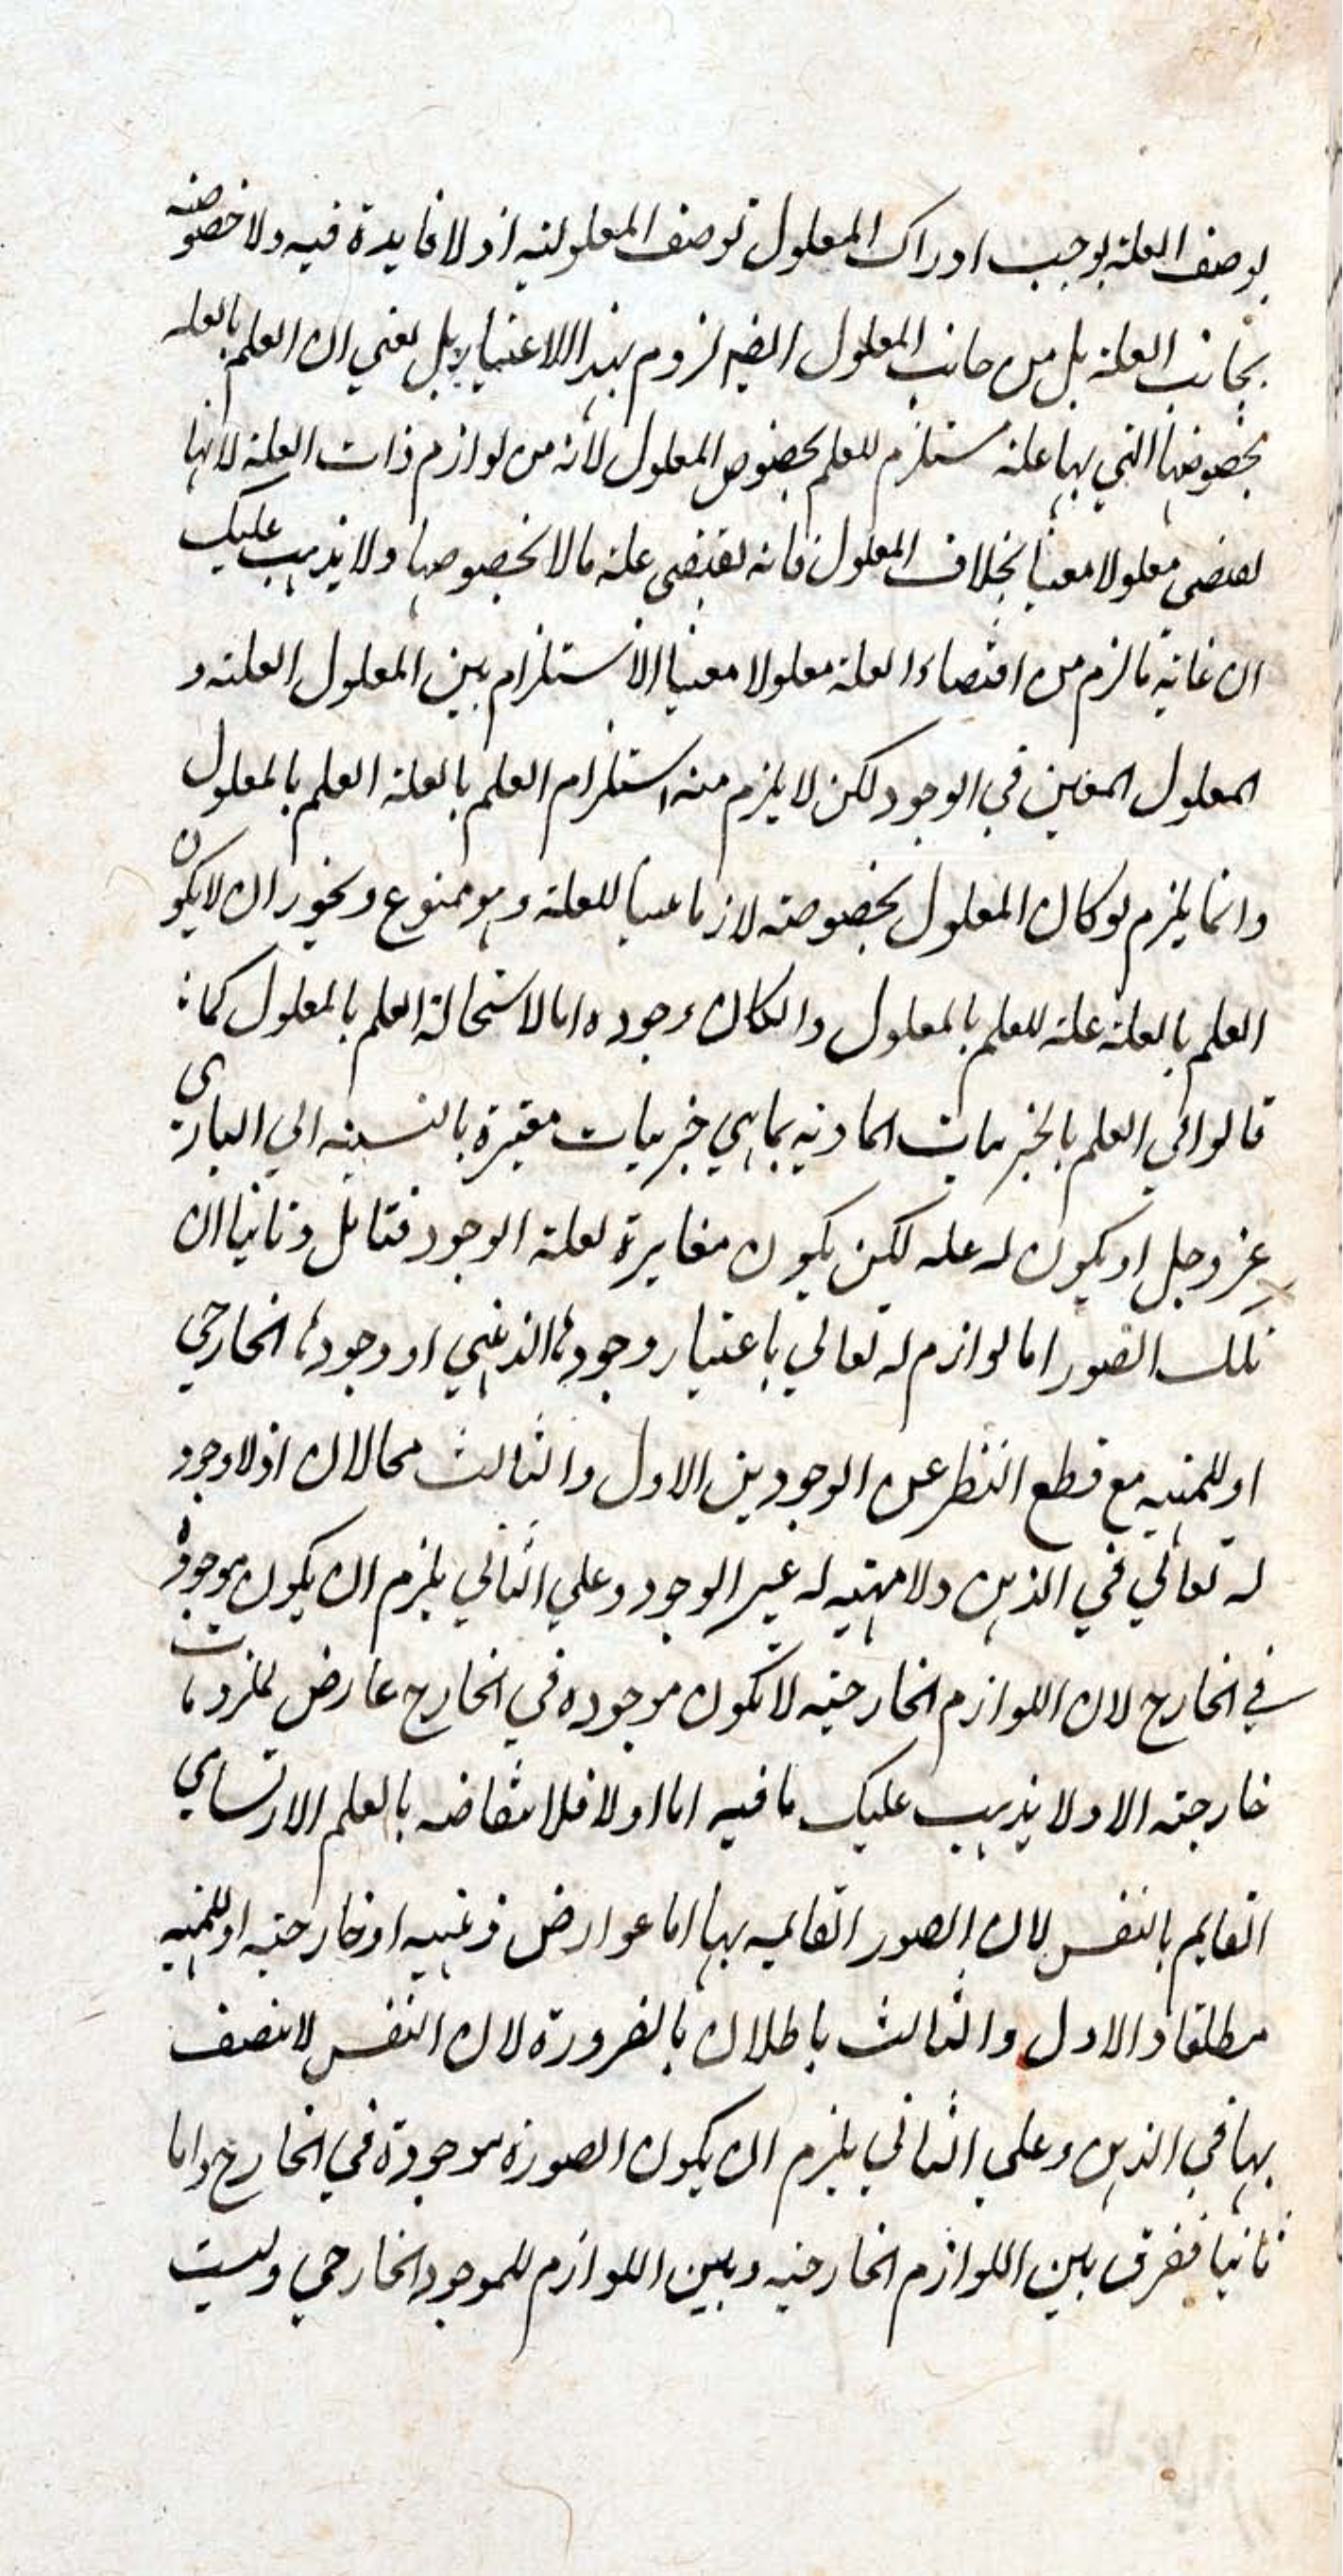 بوصف العلة يوجب ادراك المعلول توصف المعلولية اذ لا فايدة فيه ولا خصوصيته
بجانب العلة بل من جانب المعلول ايضا لزوم بهذا الاعتبار بل يعني ان العلم بالعله
بخصوصها التي بها علة مستلزم للعلم بخصوص المعلول لانه من لوازم ذات العلة لانها
يقتضي معلولا معينا بخلاف المعلول فانه يقتضي علة ما لا بخصوصها ولا يذهب عليك
ان غاية ما لزم من اقتضاء العلة معلولا معينا الاستلزام بين المعلول العلته و
المعلول المعين في الوجود لكن لا يلزم منه استلزام العلم بالعلة العلم بالمعلول
وانما يلزم لو كان المعلول بخصوصته لازما بينا للعلة وهو ممنوع ويجوز ان لا يكون
العلم بالعلة علة للعلم بالمعلول والكان وجوده اما لاستحالة العلم بالمعلول كما
قالوا في العلم بالجزييات المادية بما هي جزييات متغيرة بالنسبة الي الباري
عز وجل او يكون له عله لكن يكون مغايرة لعلة الوجود فتامل وثانيا ان
تلك الصور اما لوازم له تعالي باعتبار وجودها الذهني او وجودها الخارجي
او للمهية مع قطع النظر عن الوجودين الاول والثالث محالان اذ لا وجود
له تعالي في الذهن ولا مهية له غير الوجود وعلي الثاني يلزم ان يكون موجودة
في الخارج لان اللوازم الخارجيه لا تكون موجوده في الخارج عارض لملزومات
خارجته الا ولا يذهب عليك ما فيه اما اولا فلانتقاضه بالعلم الارتسامي
القايم بالنفس لان الصور القايمه بها اما عوارض ذهنيه او خارجيه او للمهية
مطلقا والاول والثالث باطلان بالضرورة لان النفس لا تتصف
بها في الذهن وعلي الثاني يلزم ان يكون الصورة موجودة في الخارج واما
ثانيا ففرق بين اللوازم الخارجيه وبين اللوازم للموجود الخارجي وليست